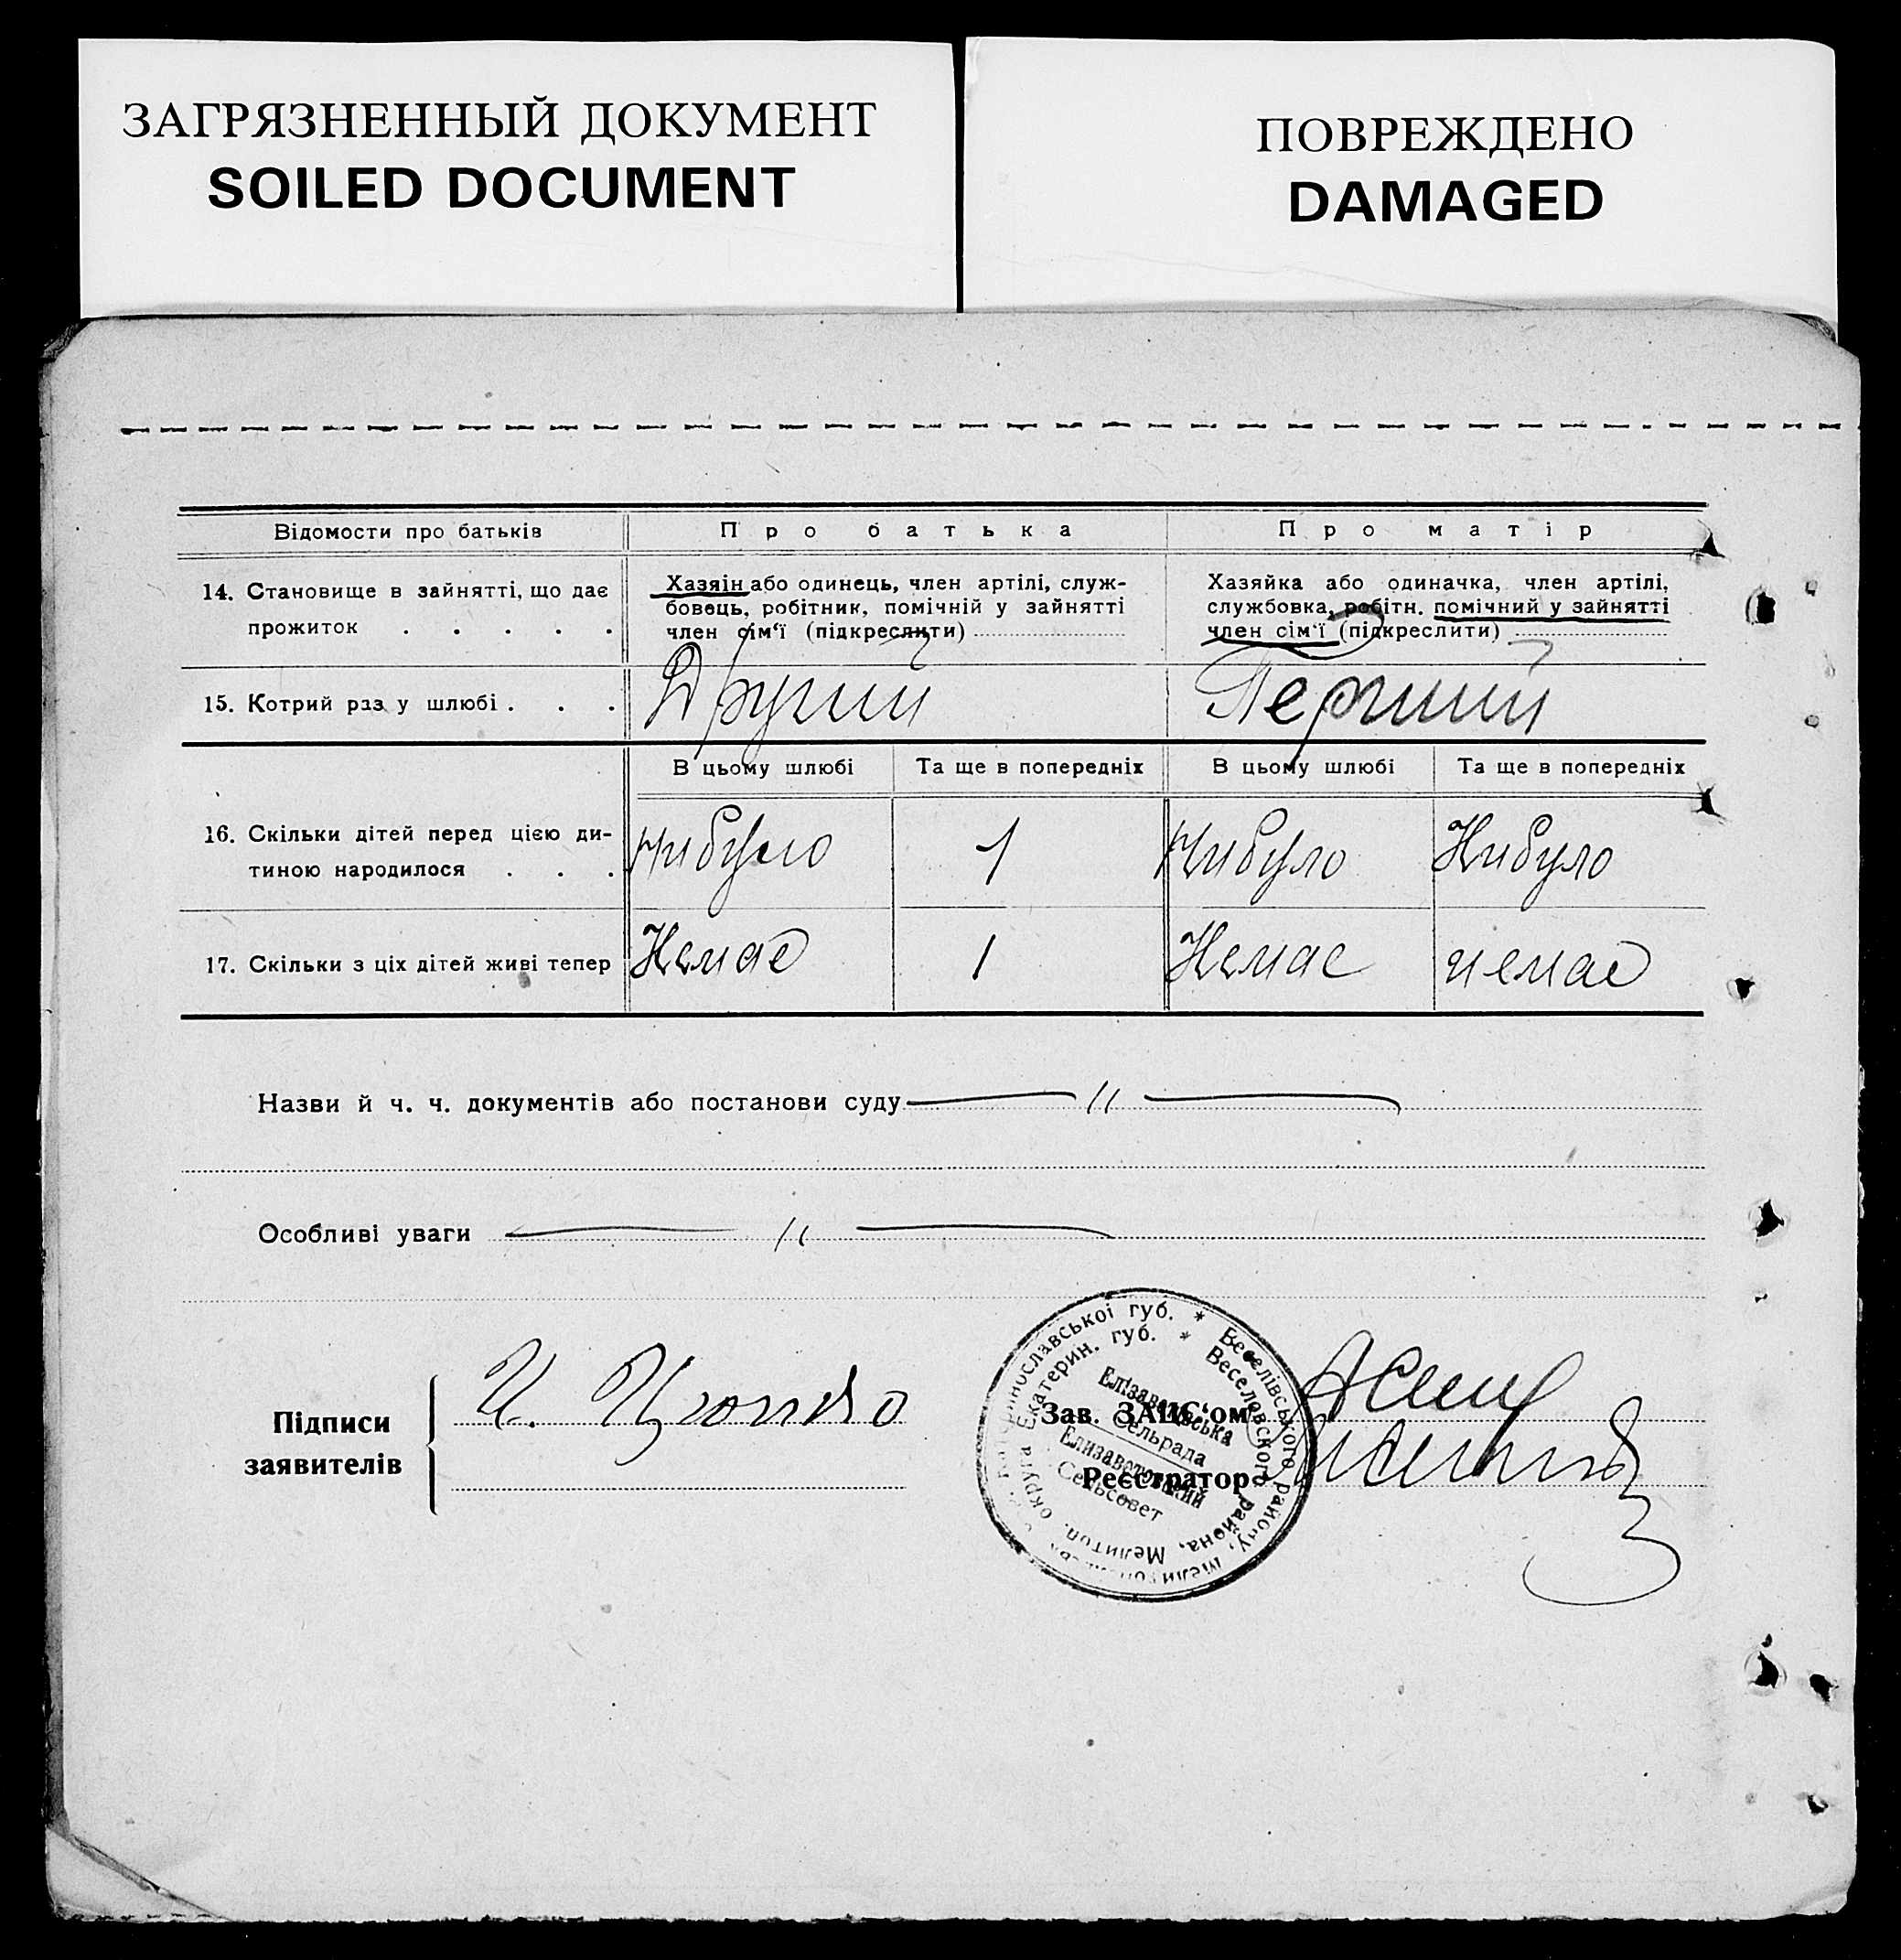 ЗАГРЯЗНЕННЫЙ ДОКУМЕНТ
SOILED DOCUMENT
ПОВРЕЖДЕНО
DAMAGED
Відомости про батьків
Про батька
Про матір
14. Становище в зайнятті, що дає
прожиток . . . . .
Хазяін або одинець, член артілі, служ-
бовець, робітник, помічній у зайнятті
член сім'ї (підкреслити)
Хазяйка або одиначка, член артілі,
службовка, робітн. помічний у зайнятті
член сім'ї (підкреслити)
15. Котрий раз у шлюбі . . .
Другий
Перший
В цьому шлюбі
Та ще в попередніх
В цьому шлюбі
Та ще в попередніх
16. Скільки дітей перед цією ди-
тиною народилося . . .
Нибуло
1
Нибуло
Нибуло
17. Скільки з ціх дітей живі тепер
Немає
1
Немає
немає
Назви й ч. ч. документів або постанови суду — " —
Особливі уваги — " —
Підписи
заявителів
И.
Зав. ЗАЦС'ом
Реєстратор
Катеринославської губ. * Веселівського району,
округа Екатерин. губ. * Веселовского района, Мелитоп.
Елізаветівська
Сельрада
Елизаветовский
Сельсовет